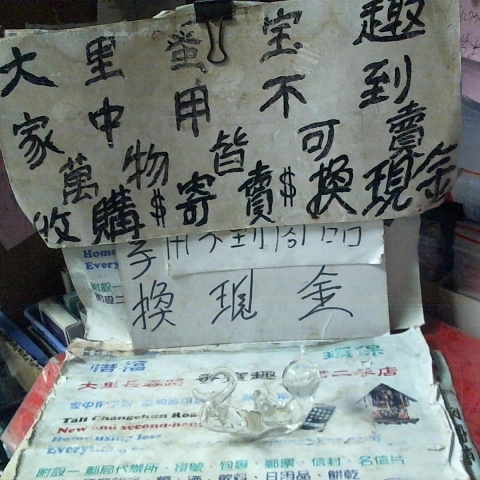 大里蚤宝趣
家中用不到
萬物皆可賣
收購$寄賣$換現金
Home
Every
附設
用不到商品
換現金
惜福 環保
大里長春路 蚤寶趣 二手店
Tali Changchun Road
New and second-hand
Home using less
Everything
附設—郵局代辦所、掛號、包裹、郵票、信封、名信片
飲料、日用品、餅乾